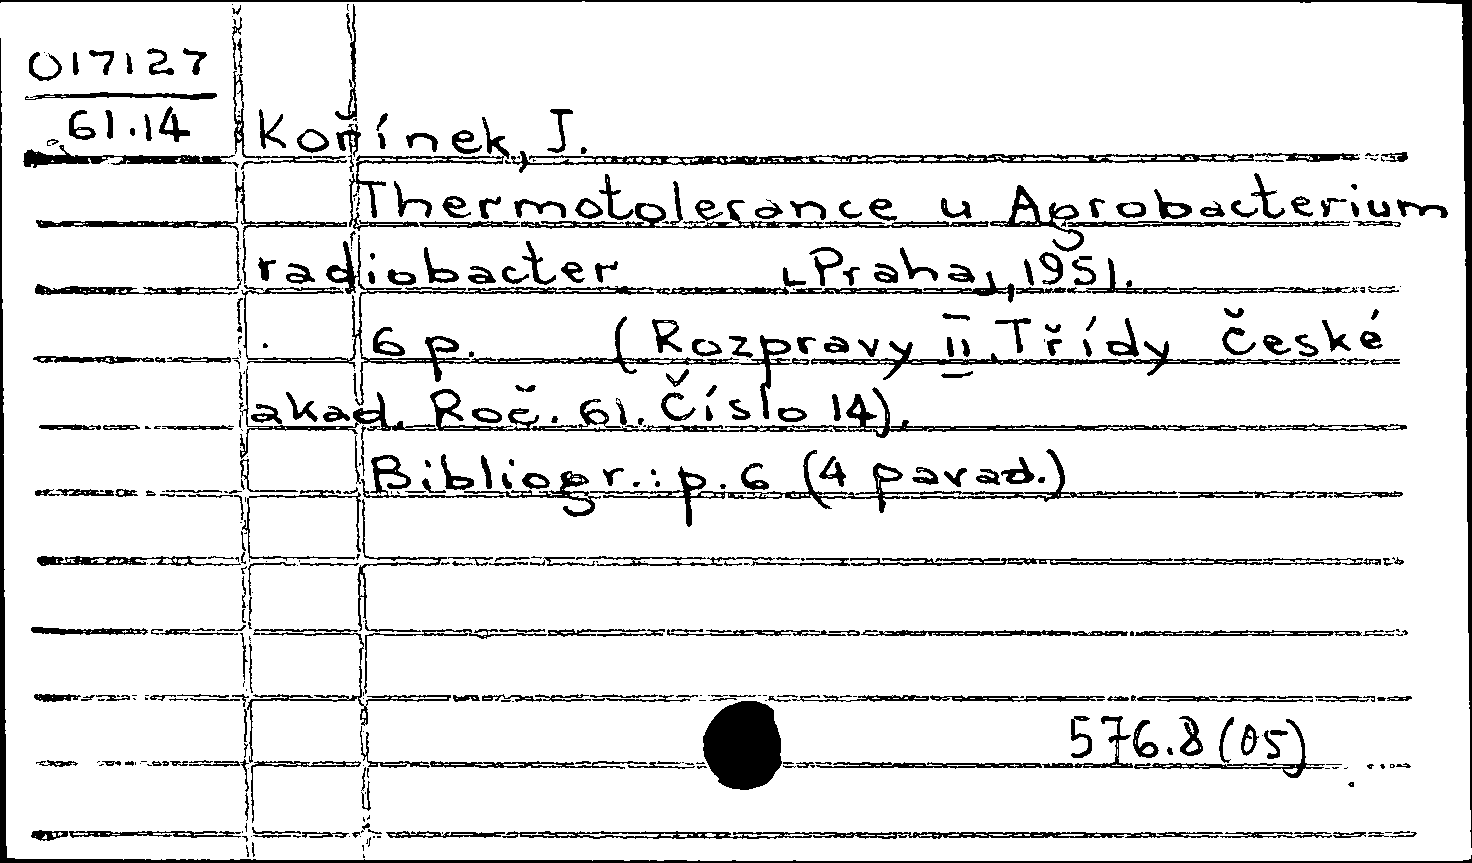 017127
61.14
Kořínek, J.
Thermotolerance u Agrobacterium
radiobacter [Praha], 1951.
6 p. (Rozpravy II. Třídy České
akad. Roč. 61. Číslo 14).
Bibliogr.: p. 6 (4 parad.)
576.8(05)